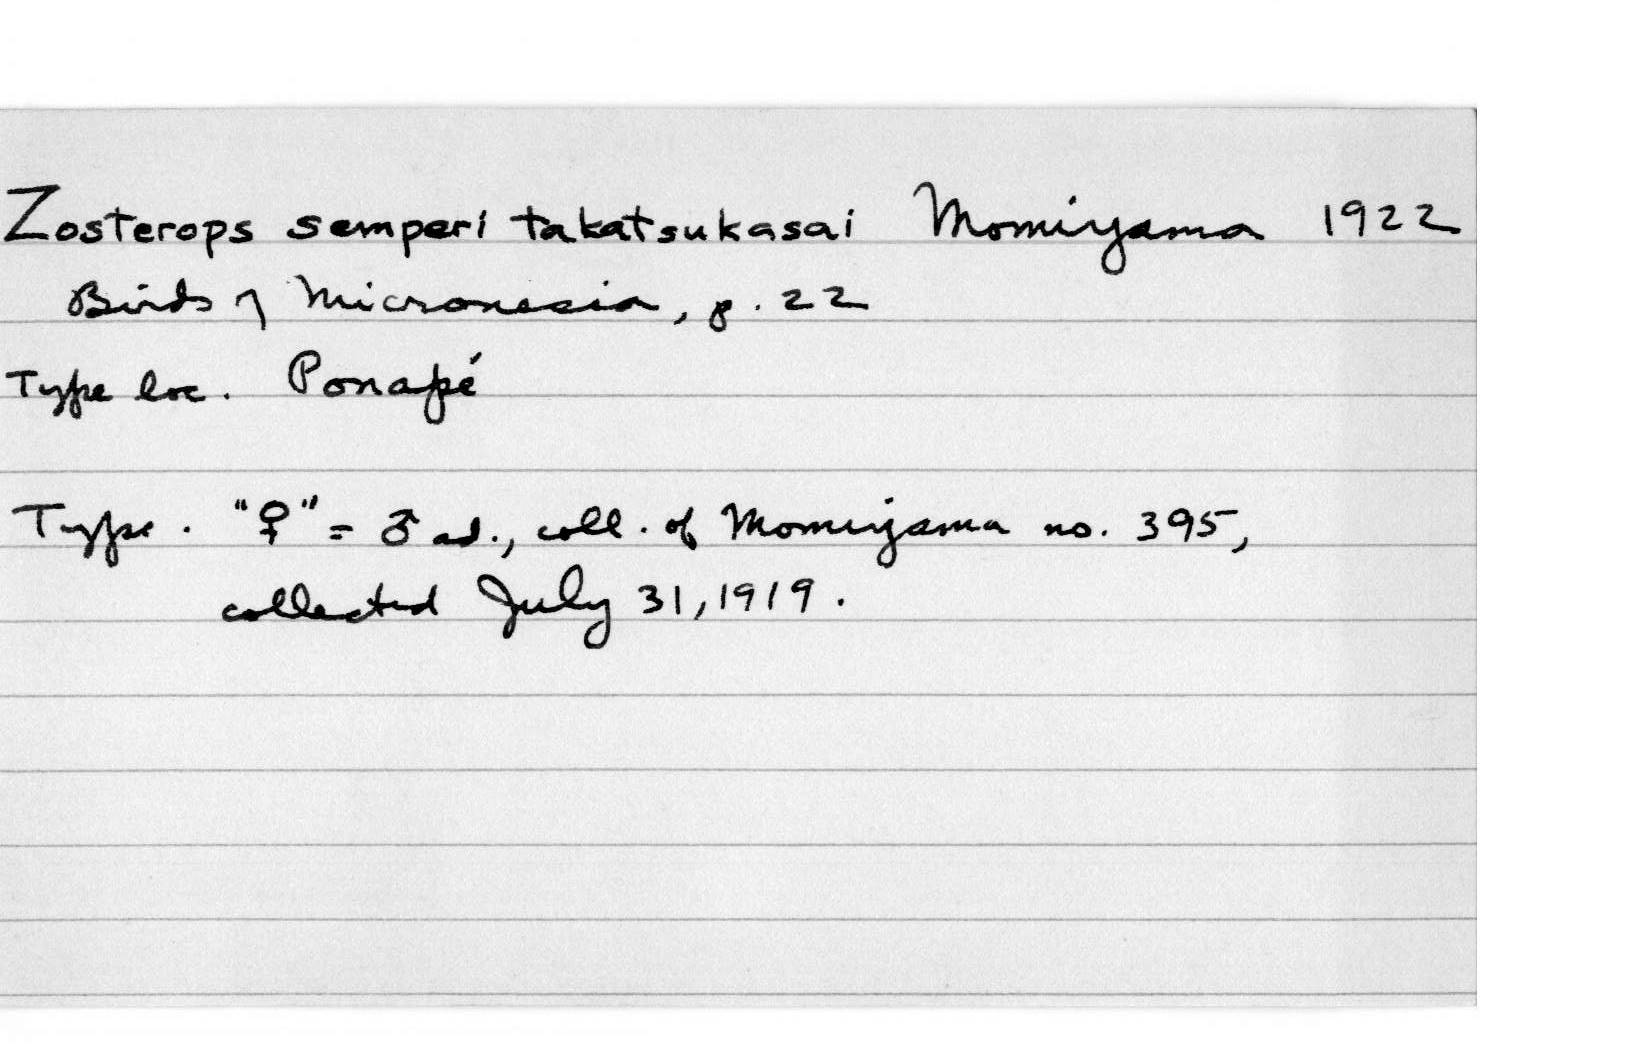 Zosterops semperi takatsukasai Momiyama 1922
Birds of Micronesia, p. 22
Type loc. Ponapé
Type. "♀" = ♂ ad., coll. of Momiyama no. 395,
collected July 31, 1919.